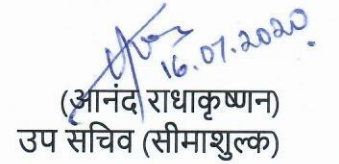 16.07.2020
(आनंद राधाकृष्णन)
उप सचिव (सीमाशुल्क)